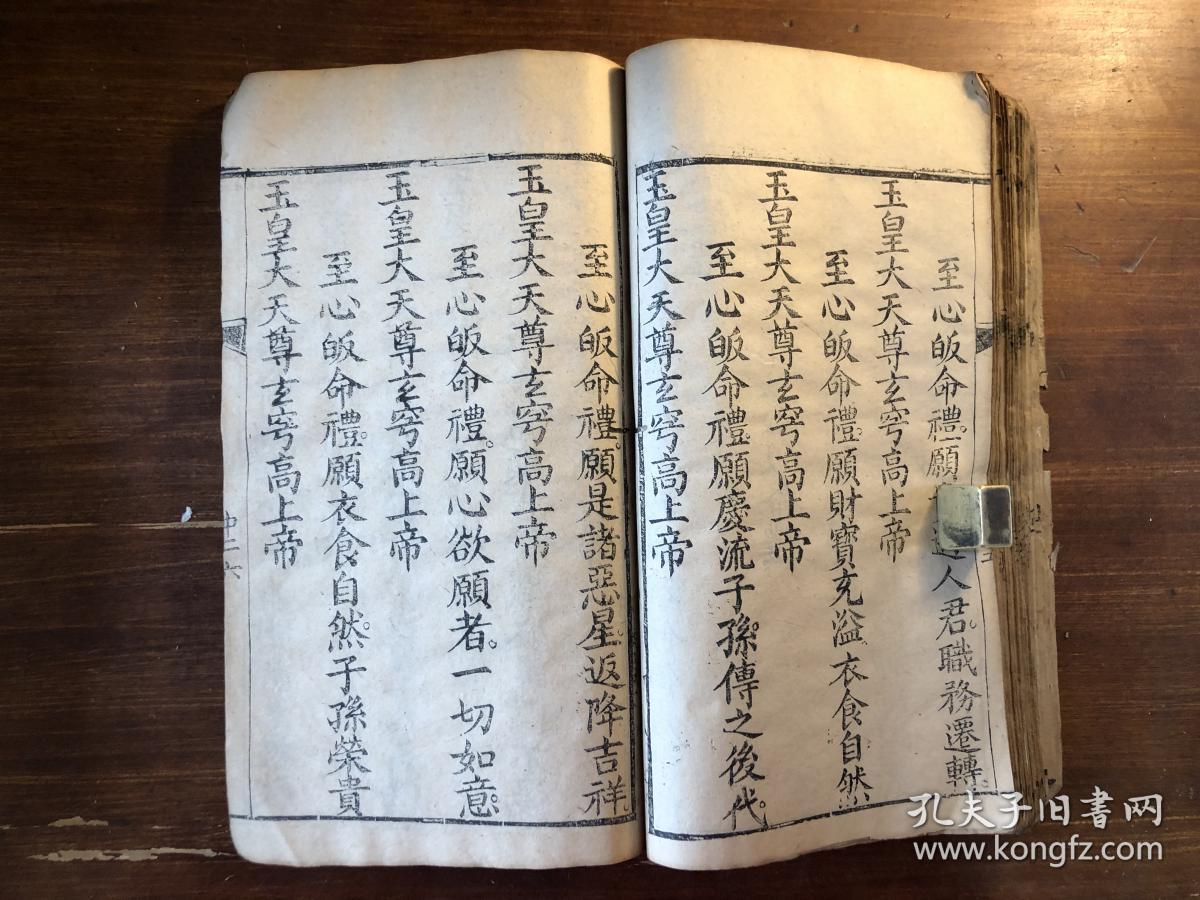 至心皈命禮。願遇人君。職務遷轉。
玉皇大天尊玄穹高上帝
至心皈命禮。願財寶充溢。衣食自然。
玉皇大天尊玄穹高上帝
至心皈命禮。願慶流子孫。傳之後代。
玉皇大天尊玄穹高上帝
至心皈命禮。願是諸惡星。返降吉祥。
玉皇大天尊玄穹高上帝
至心皈命禮。願心欲願者。一切如意。
玉皇大天尊玄穹高上帝
至心皈命禮。願衣食自然。子孫榮貴
玉皇大天尊玄穹高上帝
中二六
孔夫子旧书网
www.kongfz.com